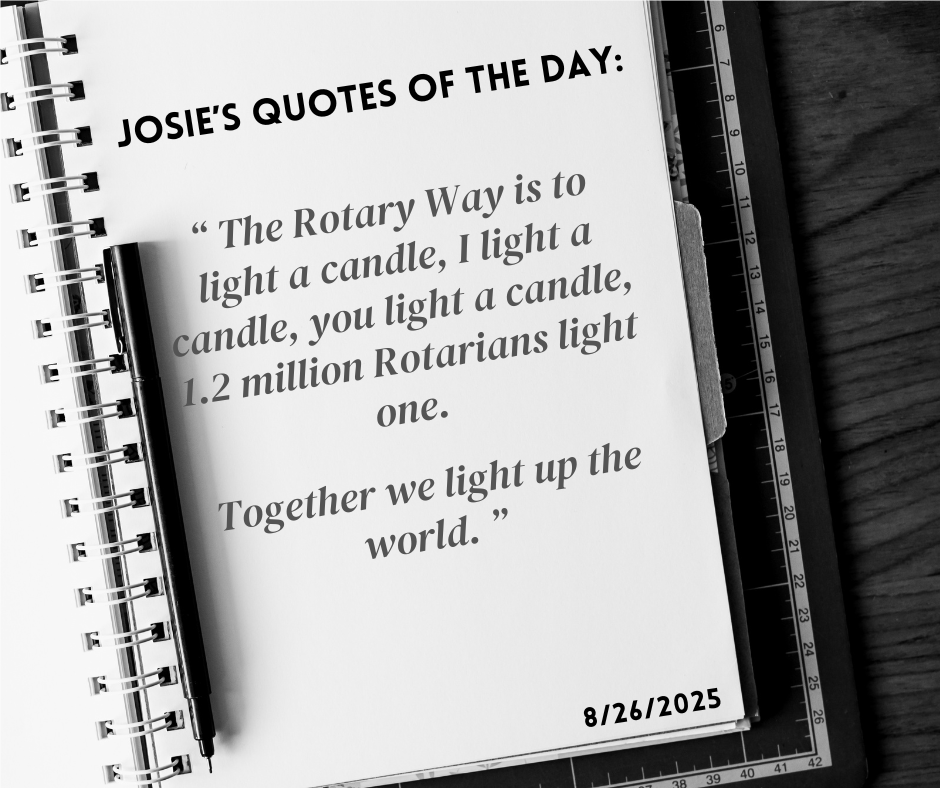 JOSIE'S QUOTES OF THE DAY:
“ The Rotary Way is to
light a candle, I light a
candle, you light a candle,
1.2 million Rotarians light
one.
Together we light up the
world. ”
8/26/2025
6
7
8
9
10
11
12
13
14
15
16
17
18
19
20
21
22
23
24
25
26
37
38
39
40
41
42